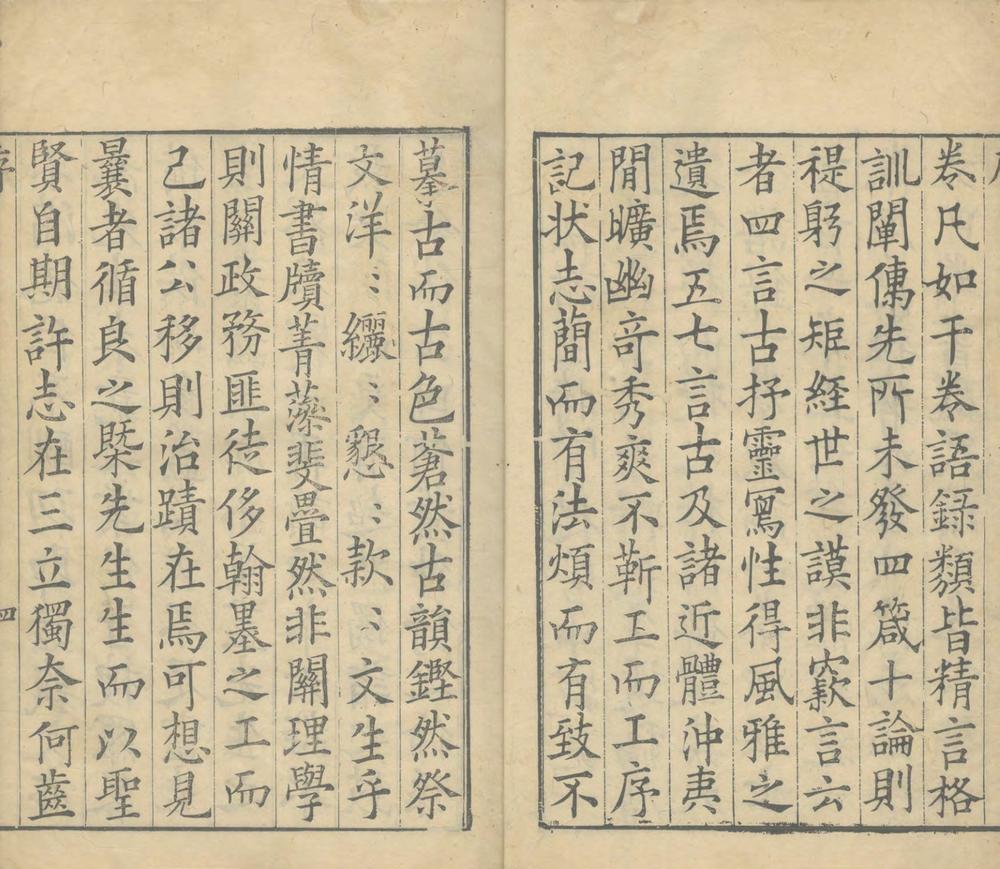 卷凡如干卷語録類皆精言格
訓闡傳先所未發四箴十論則
禔躬之矩経世之謨非窾言云
者四言古抒靈寫性得風雅之
遺焉五七言古及諸近體沖夷
閒曠幽竒秀爽不蕲工而工序
記状志簡而有法煩而有致不
摹古而古色蒼然古韻鏗然祭
文洋〻纚〻懇〻款〻文生乎
情書牘菁藻斐亹然非關理學
則關政務匪徒侈翰墨之工而
己諸公移則治蹟在焉可想見
曩者循良之槩先生生而以聖
賢自期許志在三立獨奈何齒
序
四